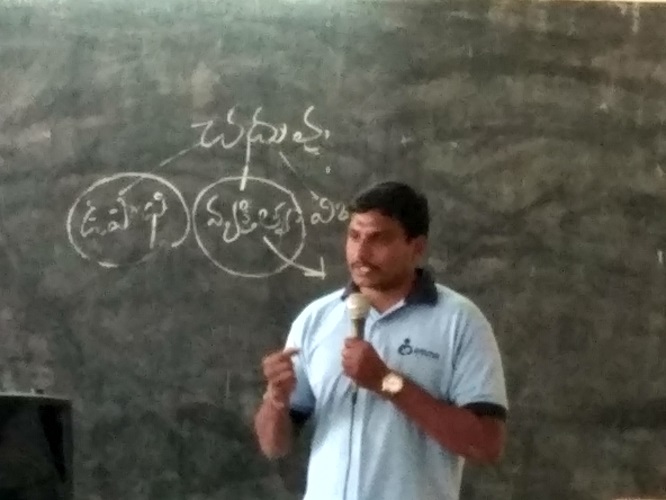 చదువు
ఉపాధి వ్యక్తిత్వం